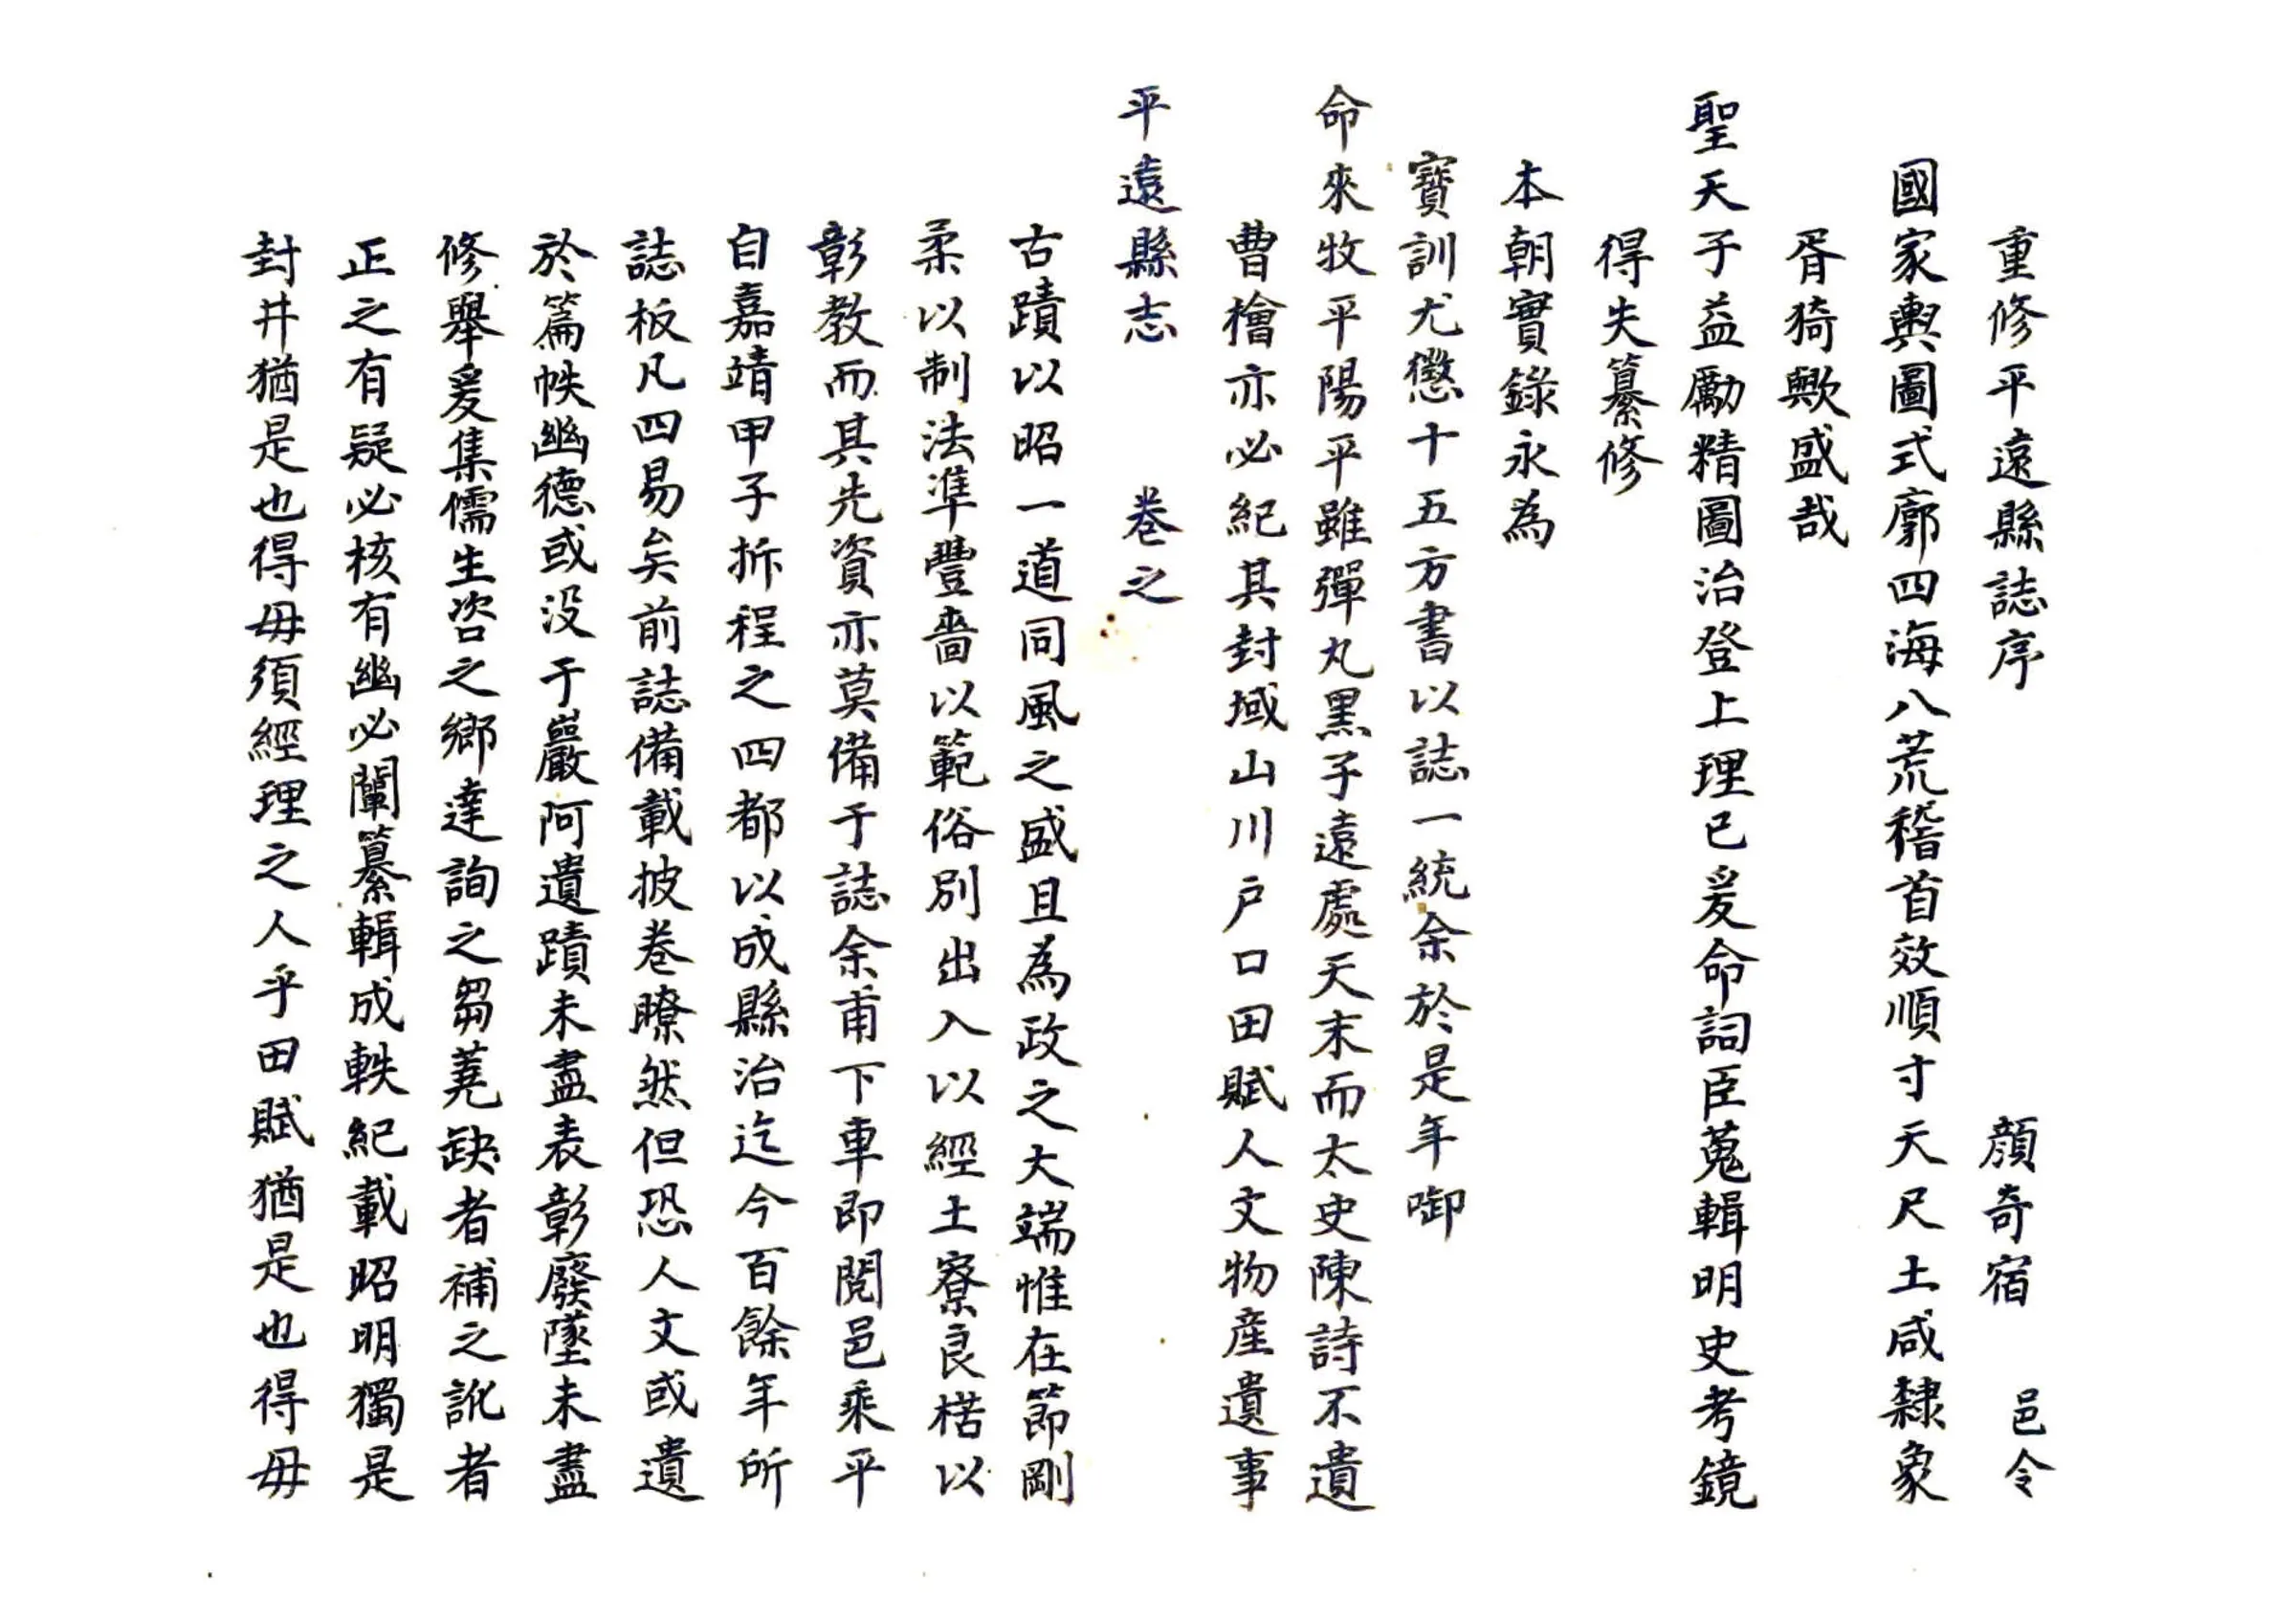 重修平遠縣誌序　顏奇宿　邑令
國家輿圖式廓四海八荒稽首效順寸天尺土咸隸象
胥猗歟盛哉
聖天子益勵精圖治登上理已爰命詞臣蒐輯明史考鏡
得失纂修
本朝實錄永為
寶訓尤懲十五方書以誌一統余於是年啣
命來牧平陽平雖彈丸黑子遠處天末而太史陳詩不遺
曹檜亦必紀其封域山川戶口田賦人文物産遺事
平遠縣志　卷之
古蹟以昭一道同風之盛且為政之大端惟在節剛
柔以制法準豐嗇以範俗別出入以經土寮良楛以
彰教而其先資亦莫備于誌余甫下車即閱邑乘平
自嘉靖甲子拆程之四都以成縣治迄今百餘年所
誌板凡四易矣前誌備載披卷瞭然但恐人文或遺
於篇帙幽德或没于巖阿遺蹟未盡表彰廢墜未盡
修舉爰集儒生咨之鄉達詢之芻蕘缺者補之訛者
正之有疑必核有幽必闡纂輯成軼紀載昭明獨是
封井猶是也得毋須經理之人乎田賦猶是也得毋